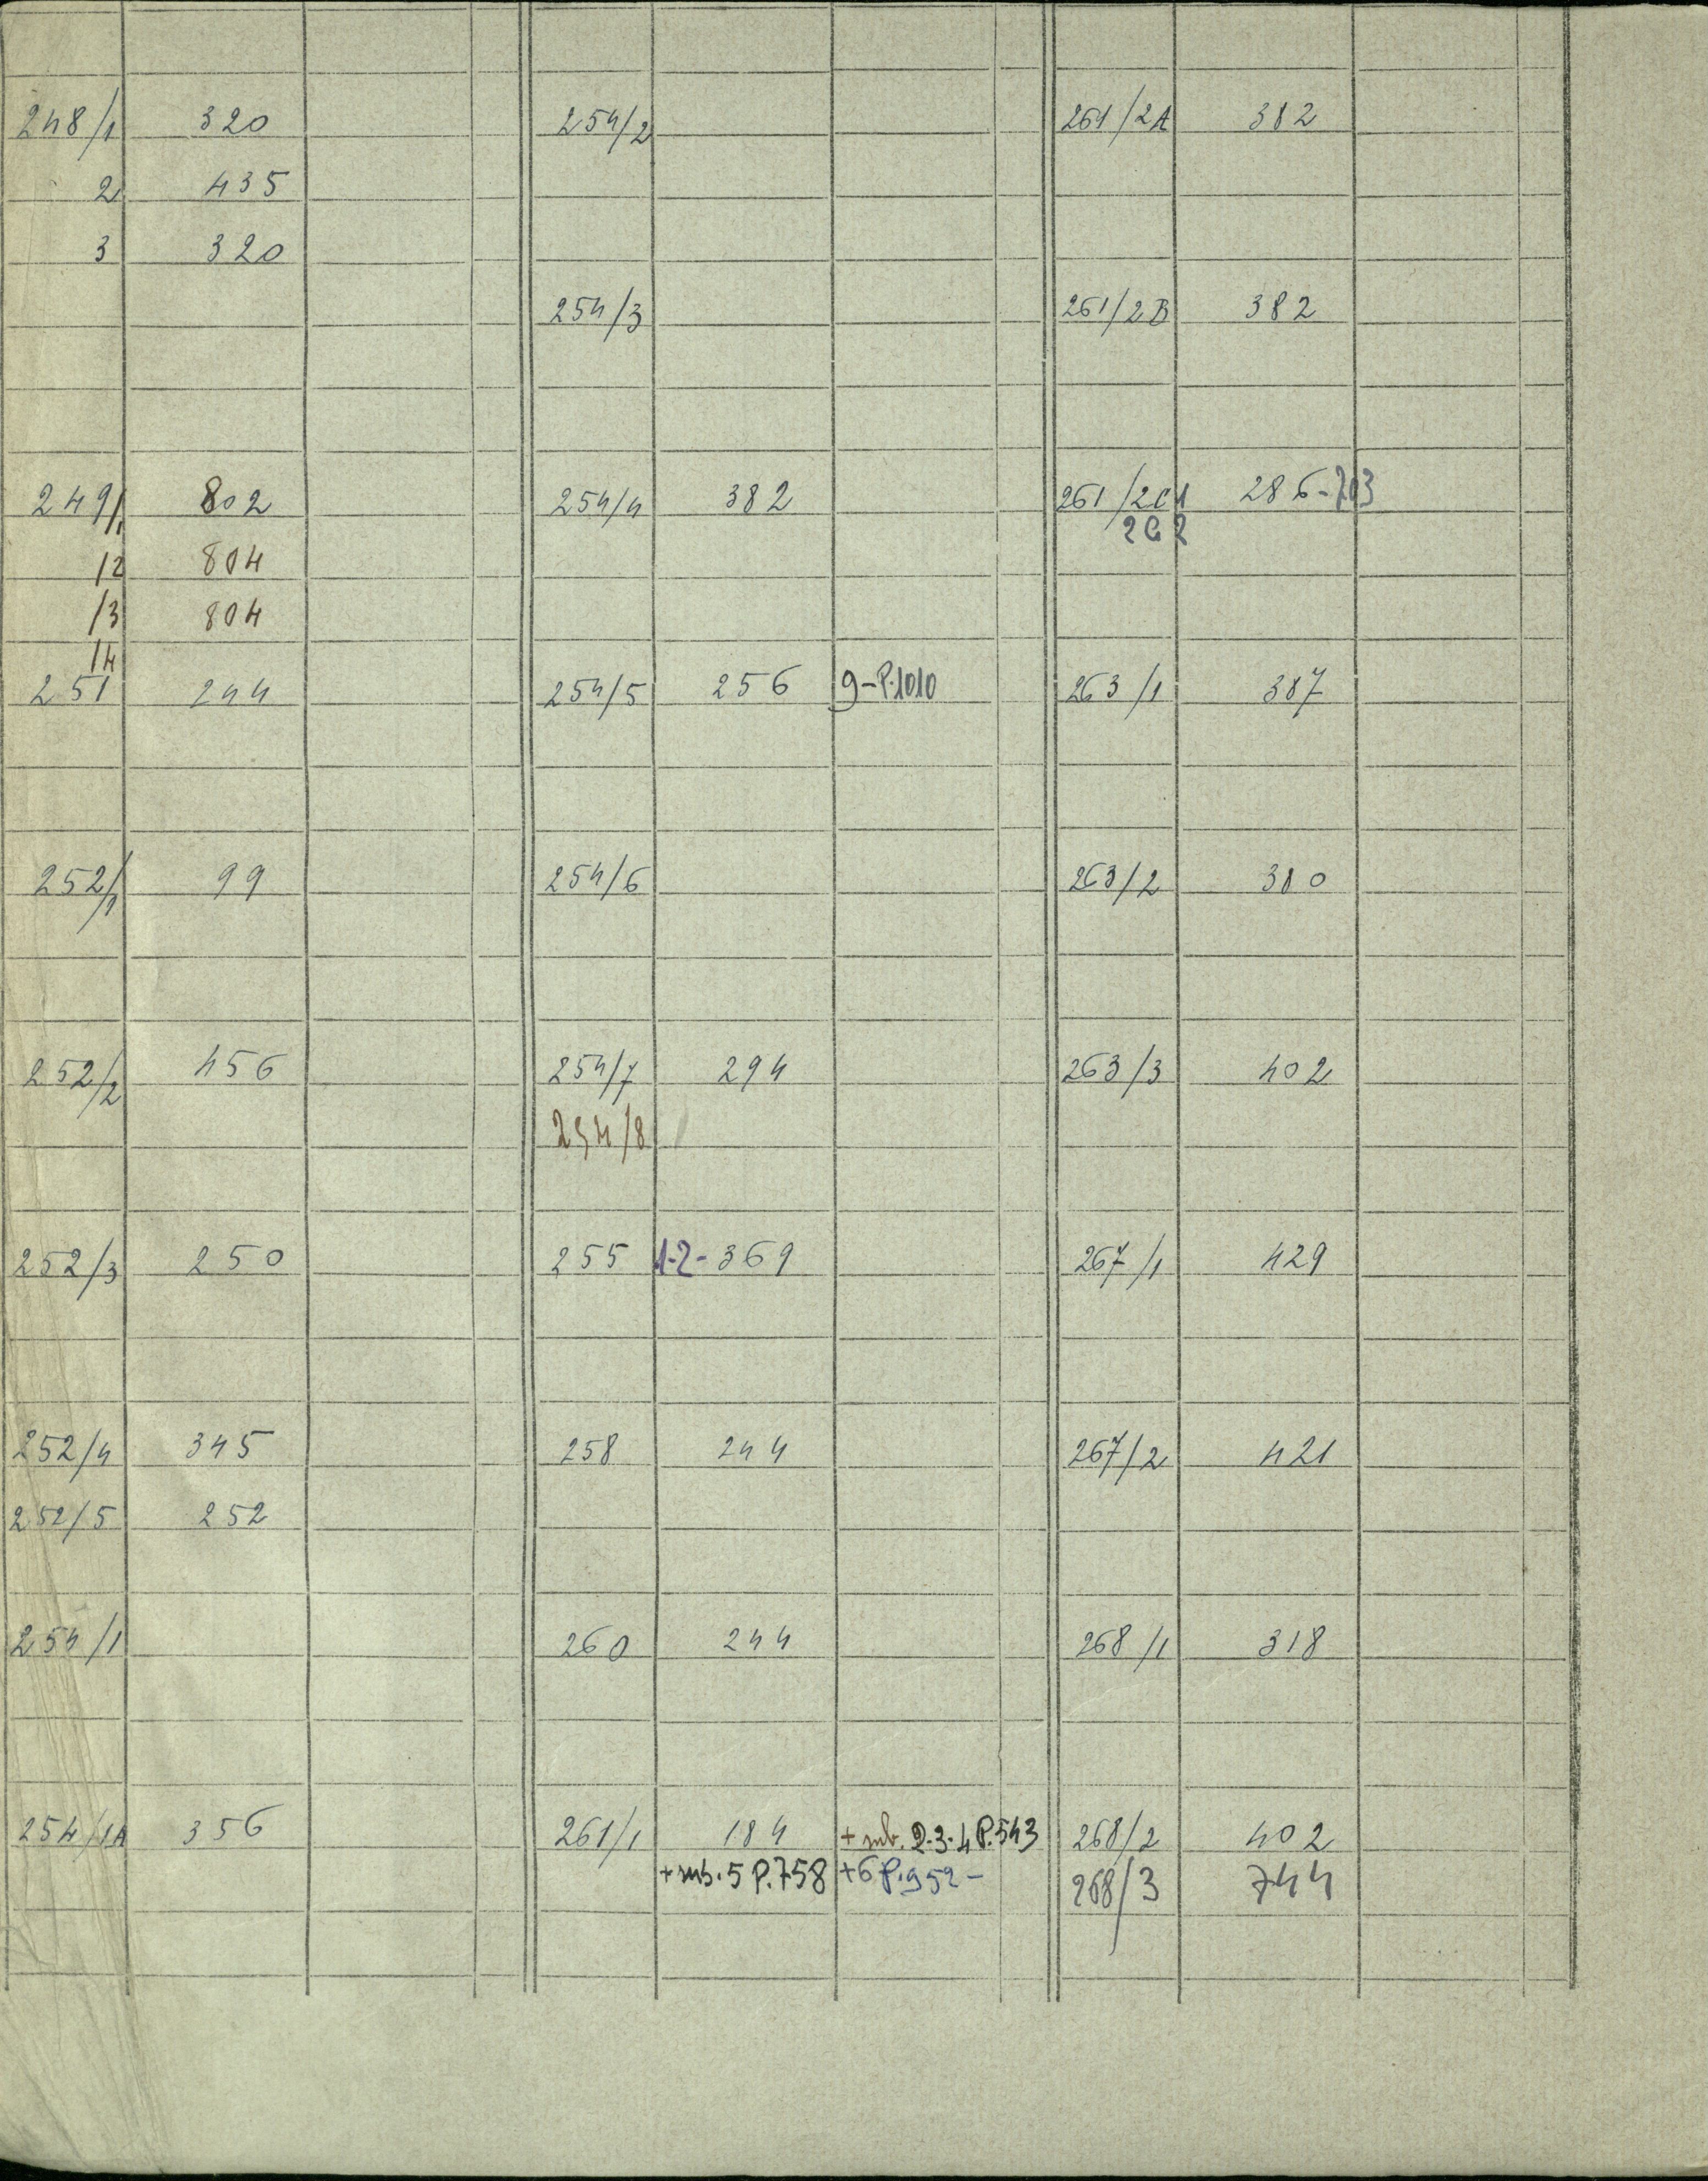 248/1 320
2 435
3 320
249/1 802
/2 804
/3 804
/4
251 244
252/1 99
252/2 456
252/3 250
252/4 345
252/5 252
254/1
254/1A 356
254/2
254/3
254/4 382
254/5 256 9-P.1010
254/6
254/7 294
254/8
255 1-2- 369
258 244
260 244
261/1 184 + sub. 2-3-4 P.543
+ sub. 5 P.758 +6 P.952-
261/2A 382
261/2B 382
261/2C1 286-703
2C2
263/1 387
263/2 380
263/3 402
267/1 429
267/2 421
268/1 318
268/2 402
268/3 744